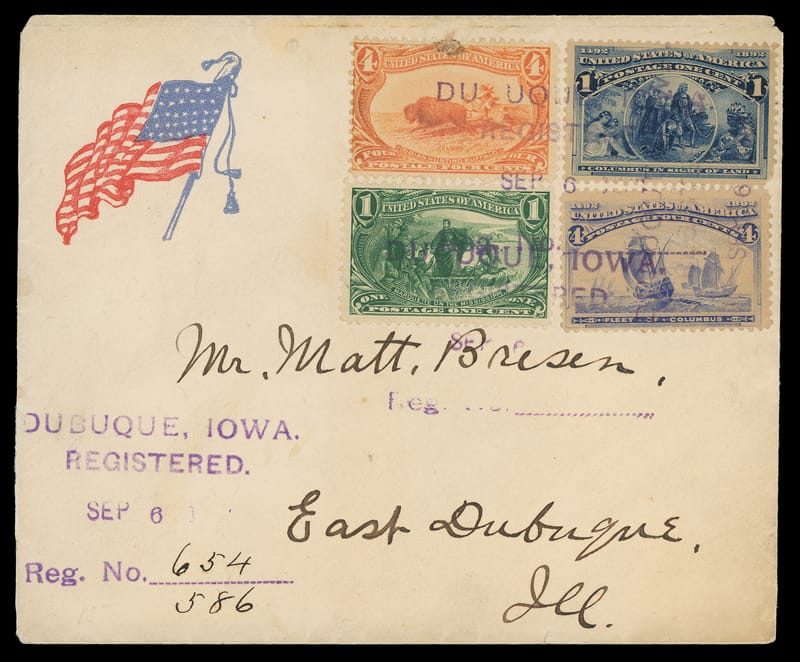 4 4
UNITED STATES OF AMERICA
INDIAN HUNTING BUFFALO
FOUR FOUR
POSTAGE FOUR CENTS
1492 1892
UNITED STATES OF AMERICA
POSTAGE ONE CENT
1 1
COLUMBUS IN SIGHT OF LAND
DU UQU
REGIST
SEP 6
UNITED STATES OF AMERICA
1 1
MARQUETTE ON THE MISSISSIPPI
ONE ONE
POSTAGE ONE CENT
1492 1892
UNITED STATES OF AMERICA
POSTAGE FOUR CENTS
4 4
FLEET OF COLUMBUS
DU UQUE, IOWA.
RED
SEP 6
Mr. Matt. Bresen,
Reg. No.
DUBUQUE, IOWA.
REGISTERED.
SEP 6 1
East Dubuque,
Reg. No. 654
586
Ill.